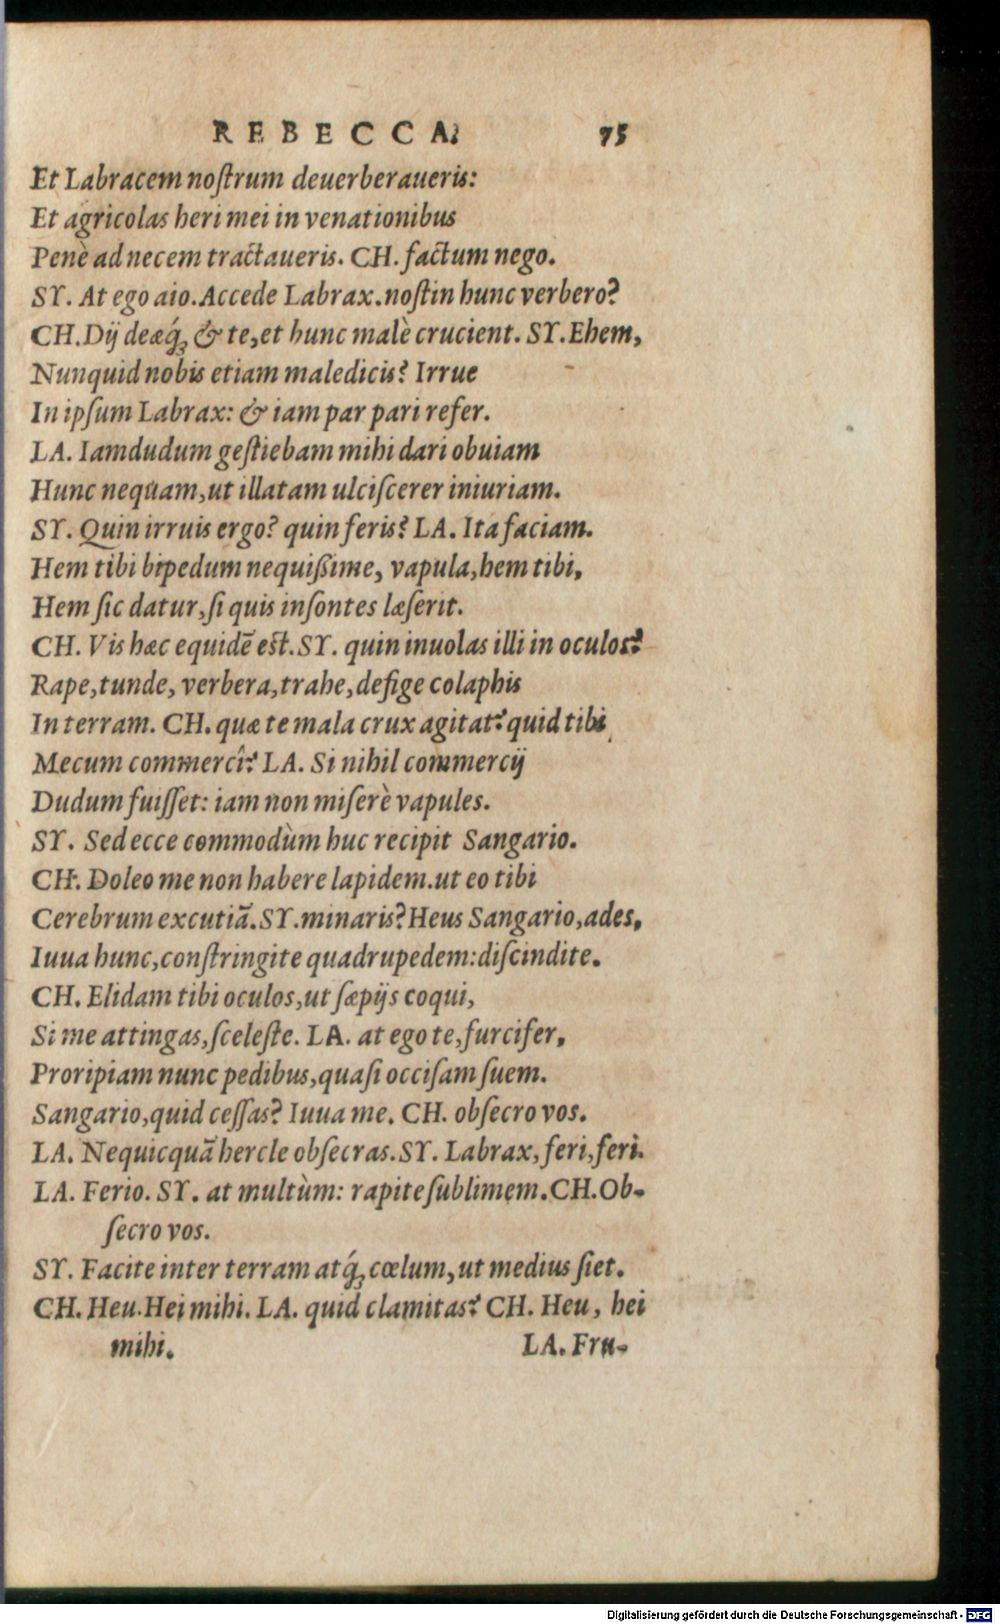 REBECCA. 75
Et Labracem noſtrum deuerberaueris:
Et agricolas heri mei in venationibus
Penè ad necem tractaueris. CH. factum nego.
SY. At ego aio. Accede Labrax. noſtin hunc verbero?
CH. Dij deæq́ꝫ & te, et hunc malè crucient. SY. Ehem,
Nunquid nobis etiam maledicis? Irrue
In ipſum Labrax: & iam par pari refer.
LA. Iamdudum geſtiebam mihi dari obuiam
Hunc nequam, ut illatam ulciſcerer iniuriam.
SY. Quin irruis ergo? quin feris? LA. Ita faciam.
Hem tibi bipedum nequißime, vapula, hem tibi,
Hem ſic datur, ſi quis inſontes læſerit.
CH. Vis hæc equidē est. SY. quin inuolas illi in oculos?
Rape, tunde, verbera, trahe, defige colaphis
In terram. CH. quæ te mala crux agitat? quid tibi
Mecum commercî? LA. Si nihil commercij
Dudum fuiſſet: iam non miſerè vapules.
SY. Sed ecce commodùm huc recipit Sangario.
CH. Doleo me non habere lapidem. ut eo tibi
Cerebrum excutiā. SY. minaris? Heus Sangario, ades,
Iuua hunc, conſtringite quadrupedem: diſcindite.
CH. Elidam tibi oculos, ut ſæpijs coqui,
Si me attingas, ſceleſte. LA. at ego te, furcifer,
Proripiam nunc pedibus, quaſi occiſam ſuem.
Sangario, quid ceſſas? Iuua me. CH. obſecro vos.
LA. Nequicquā hercle obſecras. SY. Labrax, feri, feri.
LA. Ferio. SY. at multùm: rapite ſublimem. CH. Ob-
ſecro vos.
SY. Facite inter terram atq́ꝫ cœlum, ut medius ſiet.
CH. Heu. Hei mihi. LA. quid clamitas? CH. Heu, hei
mihi. LA. Fru-
Digitalisierung gefördert durch die Deutsche Forschungsgemeinschaft - DFG